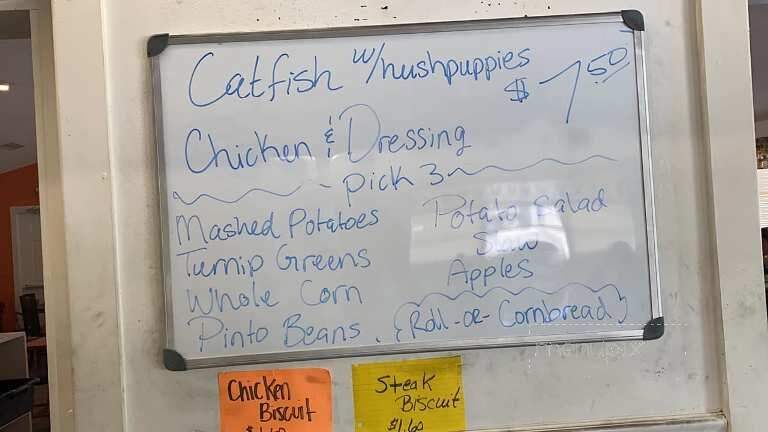 Catfish w/hushpuppies
$ 7.50
Chicken & Dressing
- pick 3
Mashed Potatoes
Turnip Greens
Whole Corn
Pinto Beans.
Potato Salad
Slaw
Apples
{Roll-or-Cornbread}
Chicken
Biscuit
Steak
Biscuit
$1.60